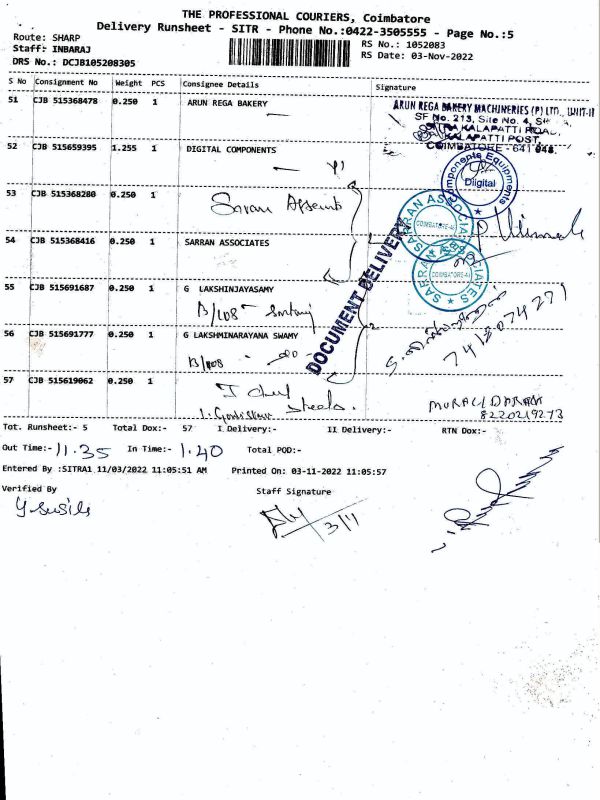 THE PROFESSIONAL COURIERS, Coimbatore
Delivery Runsheet - SITR - Phone No.:0422-3505555 - Page No.:5
Route: SHARP
Staff: INBARAJ
DRS No.: DCJB105208305
RS No.: 1052083
RS Date: 03-Nov-2022
S No Consignment No Weight PCS Consignee Details Signature
51 CJB 515368478 0.250 1 ARUN REGA BAKERY
ARUN REGA BAKERY MACHINERIES (P) LTD., UNIT-II
SF No. 213, Site No. 4,
KALAPATTI ROAD,
KALAPATTI POST
COIMBATORE - 641 048.
52 CJB 515659395 1.255 1 DIGITAL COMPONENTS
Components Equipments
Diigital
53 CJB 515368280 0.250 1 Sarran
SARRAN ASSOCIATES
COIMBATORE-
54 CJB 515368416 0.250 1 SARRAN ASSOCIATES
SARRAN ASSOCIATES
COIMBATORE-
DOCUMENT DELIVERY
55 CJB 515691687 0.250 1 G LAKSHINJAYASAMY
B/108
56 CJB 515691777 0.250 1 G LAKSHMINARAYANA SWAMY
B/108
57 CJB 515619062 0.250 1
MURALIDARAN
8220219273
Tot. Runsheet:- 5 Total Dox:- 57 I Delivery:- II Delivery:- RTN Dox:-
Out Time:- 11.35 In Time:- 1.40 Total POD:-
Entered By :SITRA1 11/03/2022 11:05:51 AM Printed On: 03-11-2022 11:05:57
Verified By Staff Signature
3/11